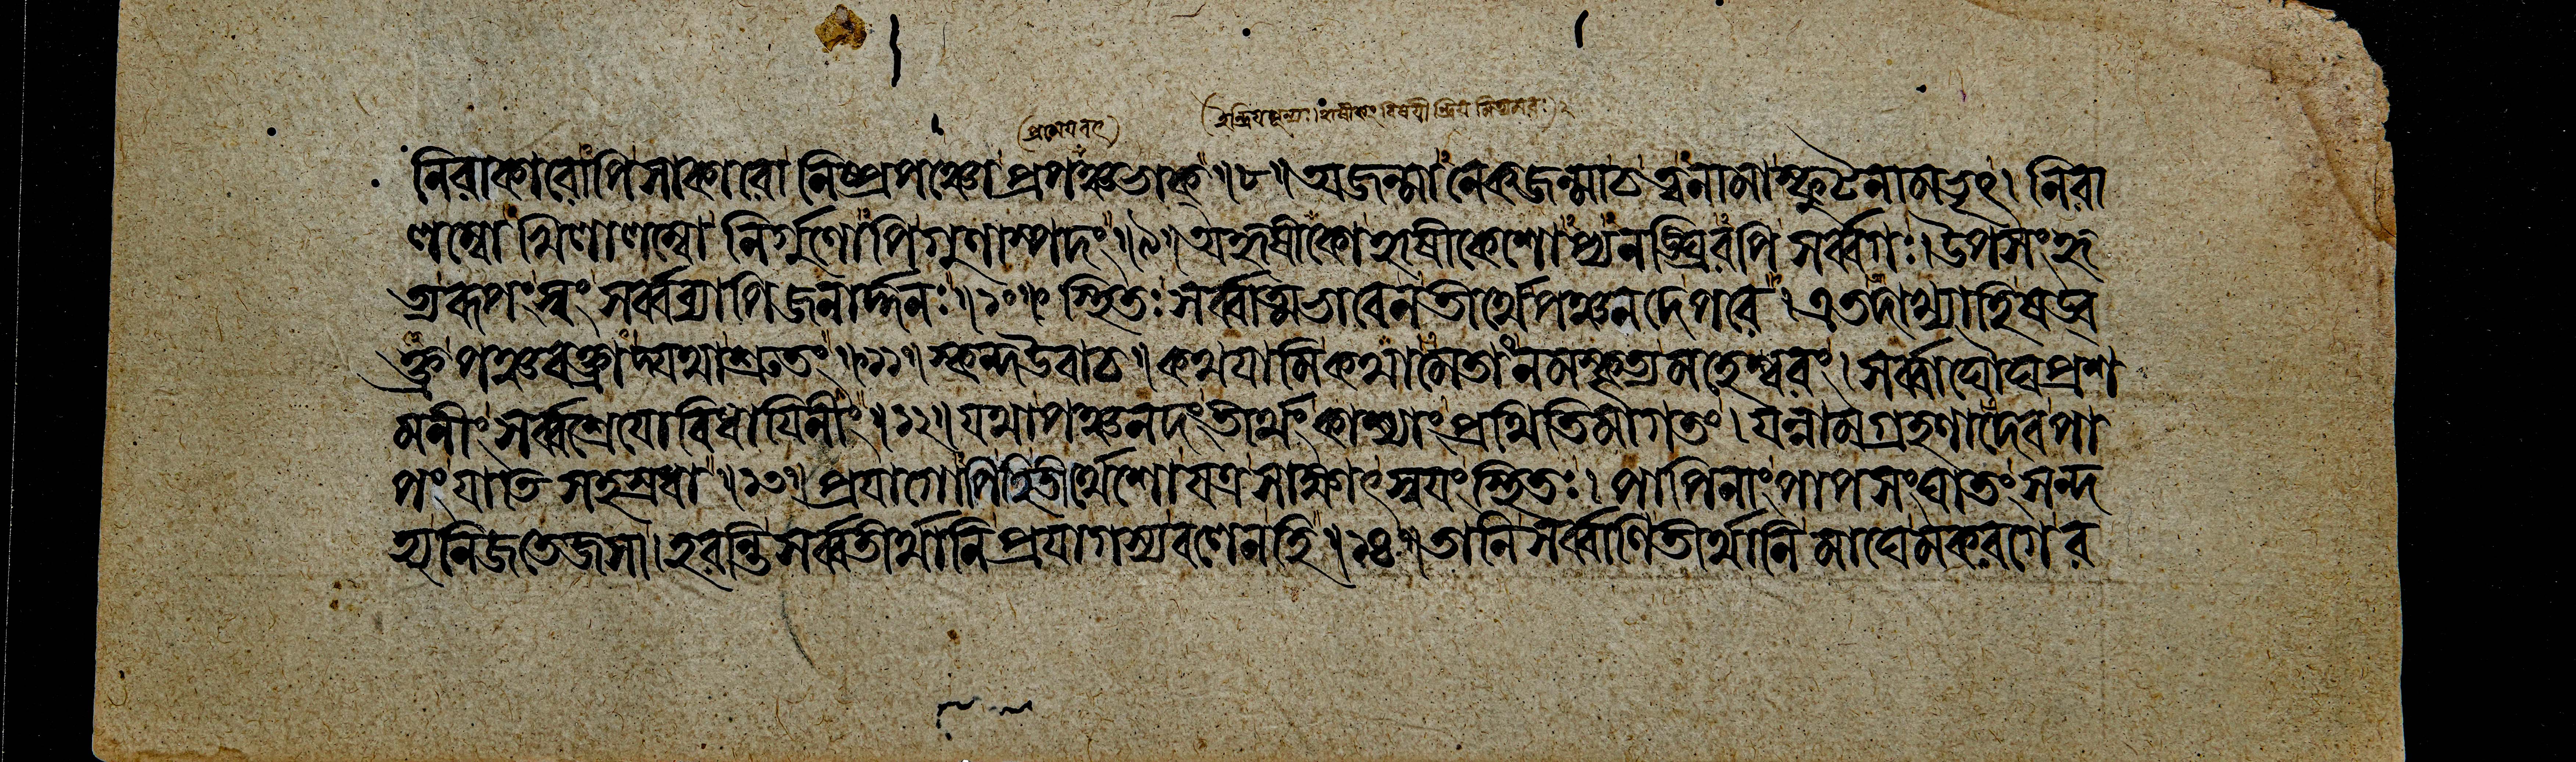 (ইন্দ্রিয়শূন্যঃ।হৃষীকং বিষয়ীন্দ্রিয়মিত্যমরঃ)২
নিরাকারোপিসাকারো নিষ্প্রপঞ্চো প্রপঞ্চভাক্॥৮॥অজন্মানেকজন্মাচত্বনামাস্ফুটনামভৃৎ।নিরা
লম্বোখিলালম্বো নির্গুণোপিগুণাস্পদং॥৯॥অহৃষীকোহৃষীকেশোপ্যনঙ্ঘ্রিরপিসর্ব্বগঃ।উপসংহৃ
ত্যরূপংস্বং সর্ব্বব্যাপিজনার্দ্দনঃ॥১০॥স্থিতঃসর্ব্বাত্মভাবেনতীর্থেপঞ্চনদেপরে।এতদাখ্যাহিষড্ব
ক্ত্রপঞ্চবক্ত্রাদ্যথাশ্রুতং॥১১॥স্কন্দউবাচ॥কথয়ামিকথামেতাংনমস্কৃত্যমহেশ্বরং।সর্ব্বাঘৌঘপ্রশ
মনীংসর্ব্বশ্রেয়োবিধায়িনীং॥১২॥যথাপঞ্চনদংতীর্থংকাশ্যাংপ্রথিতিমাগতং।যন্নামগ্রহণাদেবপা
পংযাতিসহস্রধা॥১৩॥প্রয়াগোপিহিতীর্থেশোযত্রসাক্ষাৎস্বয়ংস্থিতঃ।পাপিনাংপাপসংঘাতংসন্দ
হ্যনিজতেজসা।হরন্তিসর্ব্বতীর্থানিপ্রয়াগস্যবলেনহি॥১৪॥তানিসর্ব্বাণিতীর্থানিমাঘেমকরগের